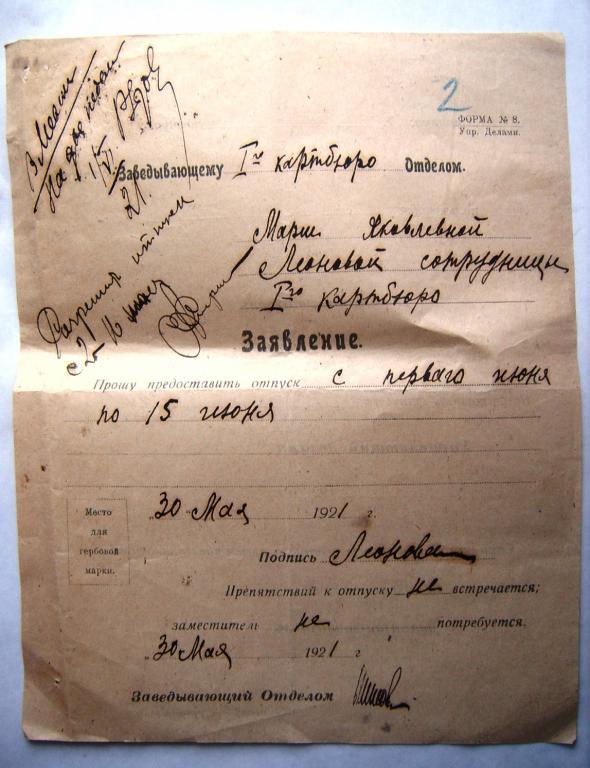 2
ФОРМА № 8.
Упр. Делами.
В Москв
на две недели
1/VI
21.
Заведывающему Iго картбюро Отделом.
Марии Яковлевной
Леоновой сотрудницы
Iго картбюро
Разрешить отпуск
с 2 16 июня
Заявление.
Прошу предоставить отпуск с перваго июня
по 15 июня
Место
для
гербовой
марки.
„30 Мая 1921 г.
Подпись Леонова
Препятствий к отпуску не встречается;
заместитель не потребуется.
„30 Мая 1921 г
Заведывающий Отделом